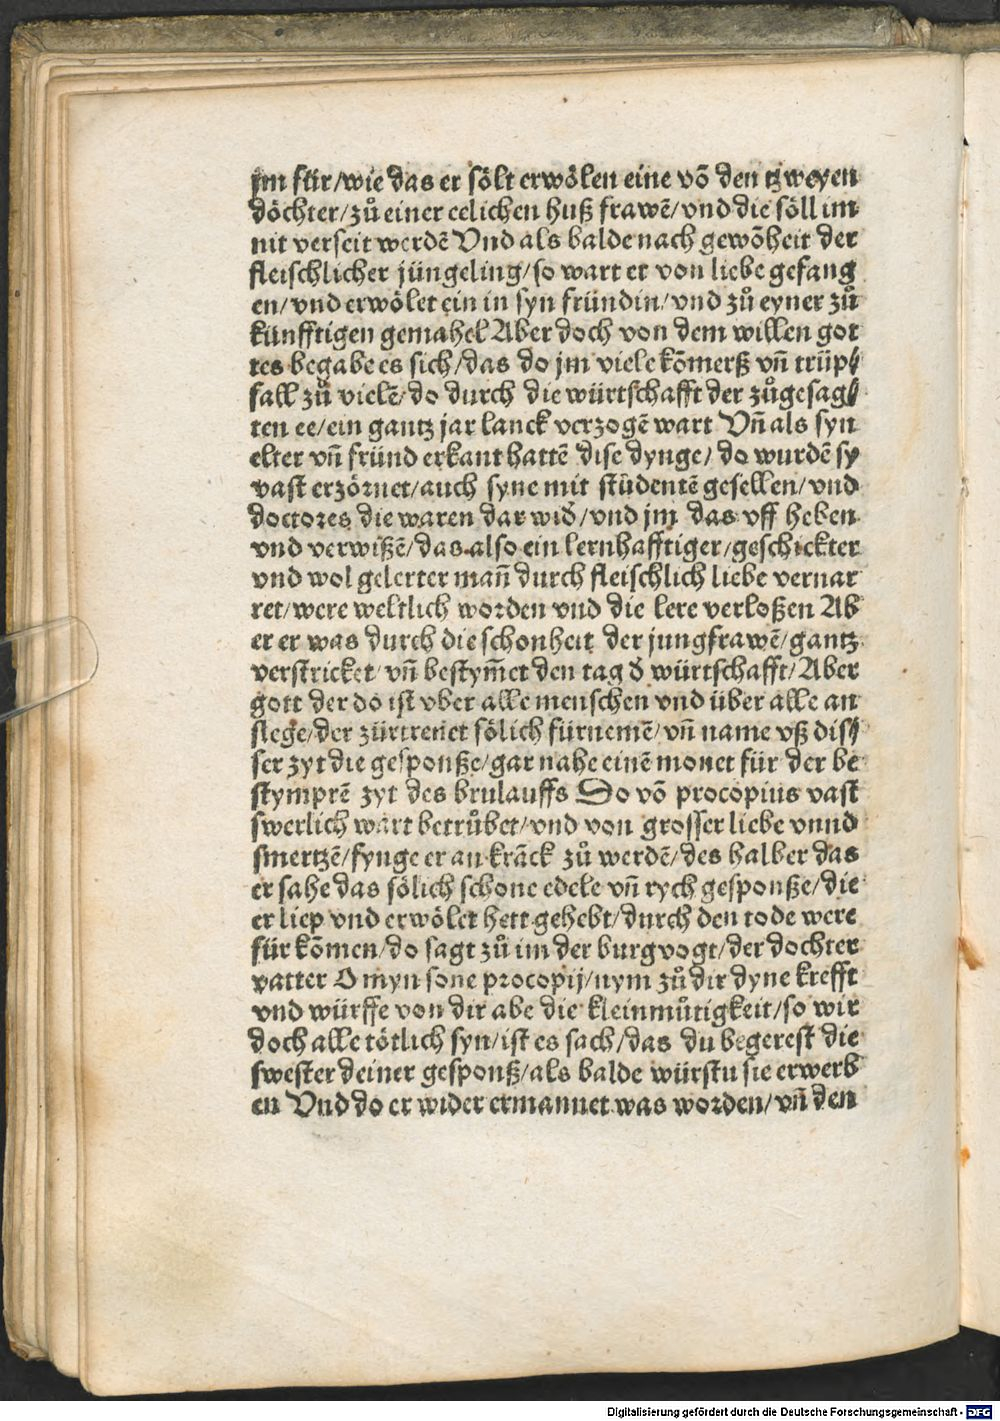 jm für/wie das er sölt erwölen eine võ den tzweyen
döchter/zů einer eelichen huß frawē/vnd die söll im
nit verseit werdē Vnd als balde nach gewõheit der
fleischlicher jüngeling/so wart er von liebe gefang
en/vnd erwölet ein in syn fründin/vnd zů eyner zů
künfftigen gemahel Aber doch von dem willen got
tes begabe es sich/das do jm viele kõmerß vñ trüp⸗
fall zů vielē/do durch die würtschafft der zůgesag⸗
ten ee/ein gantz jar lanck verzogē wart Vñ als syn
elter vñ fründ erkant hattē dise dynge/do wurdē sy
vast erzörnet/auch syne mit studentē gesellen/vnd
doctores die waren dar wið/vnd jm das vff heben
vnd verwißē/das also ein lernhafftiger/geschickter
vnd wol gelerter mañ durch fleischlich liebe vernar
ret/were weltlich worden vnd die lere verloßen Ab
er er was durch die schonheit der jungfrawē/gantz
verstricket/vñ bestym̃et den tag ð würtschafft/Aber
gott der do ist vber alle menschen vnd über alle an
slege/der zürtrenet sölich fürnemē/vñ name vß dis⸗
ser zyt die gesponße/gar nahe einē monet für der be
stymptē zyt des brulauffs So võ procopius vast
swerlich wart betrůbet/vnd von grosser liebe vnnd
smertzē/fynge er an krãck zů werdē/des halber das
er sahe das sölich schone edele vñ rych gesponße/die
er liep vnd erwölet hett gehebt/durch den tode were
für kõmen/do sagt zů im der burgvogt/der dochter
vatter O myn sone procopij/nym zů dir dyne krefft
vnd würffe von dir abe die kleinmůtigkeit/so wir
doch alle tötlich syn/ist es sach/das du begerest die
swester deiner gesponß/als balde würstu sie erwerb
en Vnd do er wider ermannet was worden/vñ den
Digitalisierung gefördert durch die Deutsche Forschungsgemeinschaft - DFG